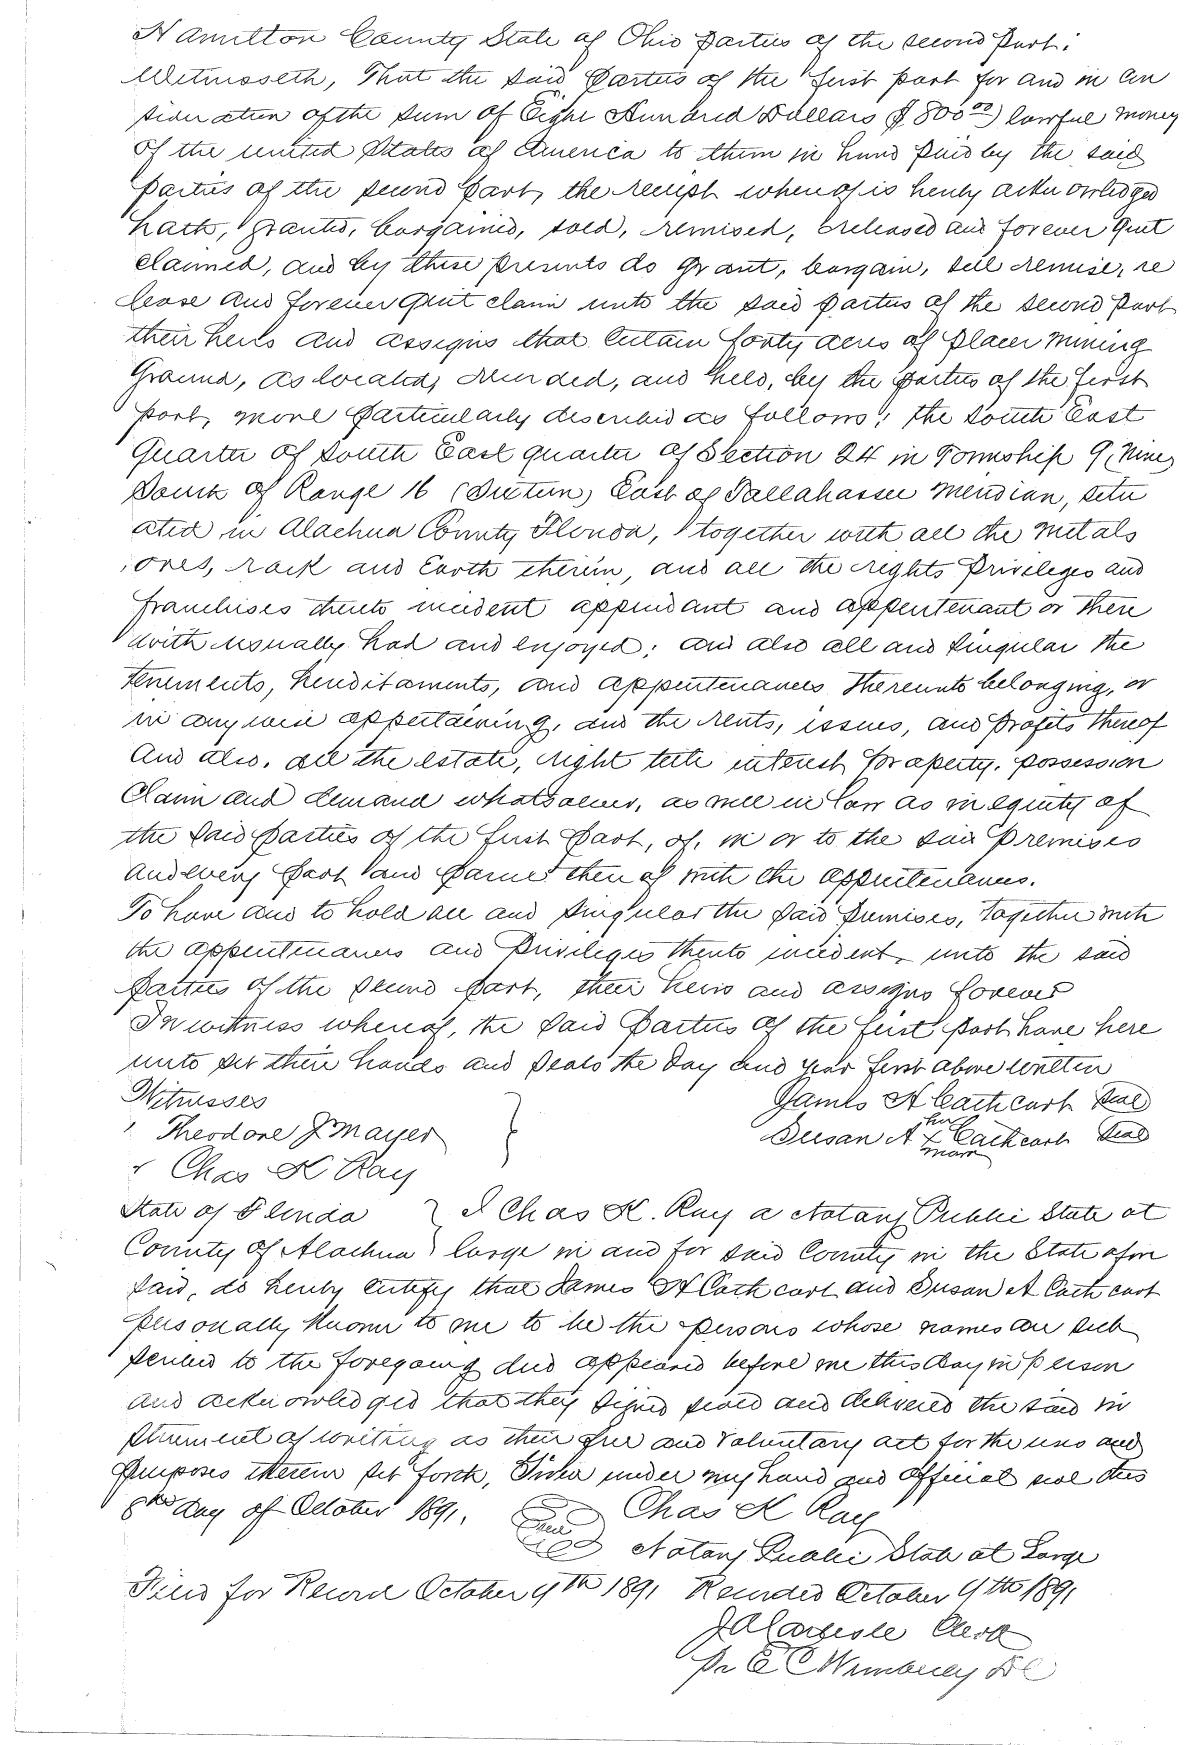 Hamilton County State of Ohio parties of the second part:
Witnesseth, That the said parties of the first part for and in con
sideration of the sum of Eight Hundred Dollars ($800.00) lawful money
of the united States of America to them in hand paid by the said
parties of the second part, the receipt whereof is hereby acknowledged
hath, granted, bargained, sold, remised, released and forever quit
claimed, and by these presents do grant, bargain, sell remise, re
lease and forever quit claim unto the said parties of the second part
their heirs and assigns that certain forty acres of placer mining
Ground, as located, recorded, and held, by the parties of the first
part, more particularly described as follows; the south East
Quarter of south East quarter of Section 24 in Township 9 (Nine)
South of Range 16 (Sixteen) East of Tallahassee Meridian, situ
ated in Alachua County Florida, together with all the metals
ores, rock and Earth therein, and all the rights Privileges and
franchises thereto incident appendant and appertenant or there
with usually had and enjoyed; and also all and singular the
tenements, hereditaments, and appertenances thereunto belonging, or
in anywise appertaining, and the rents, issues, and profits thereof
And also, all the estate, right title interest property, possession
Claim and demand whatsoever, as well in law as in equity of
the said parties of the first part, of, in or to the said premises
and every part and parcel thereof with the appertenances.
To have and to hold all and singular the said premises, together with
the appertenances and privileges thereto incident, unto the said
parties of the second part, their heirs and assigns forever
In witness whereof, the said parties of the first part have here
unto set their hands and seals the day and year first above written
Witnesses James A Cathcart Seal
Theodore J Mayer Susan A her x mark Cathcart Seal
Chas K Ray
State of Florida } I Chas K. Ray a Notary Public State at
County of Alachua } large in and for said County in the State afore
said, do hereby certify that James A Cathcart and Susan A Cathcart
personally known to me to be the persons whose names are sub
scribed to the foregoing deed appeared before me this day in person
and acknowledged that they signed sealed and delivered the said in
strument of writing as their free and voluntary act for the uses and
purposes therein set forth, Given under my hand and official seal this
8th day of October 1891. Seal Chas K Ray
Notary Public State at Large
Filed for Record October 9th 1891 Recorded October 9th 1891
J A Carlisle Clerk
Pr E C Wimberley DC